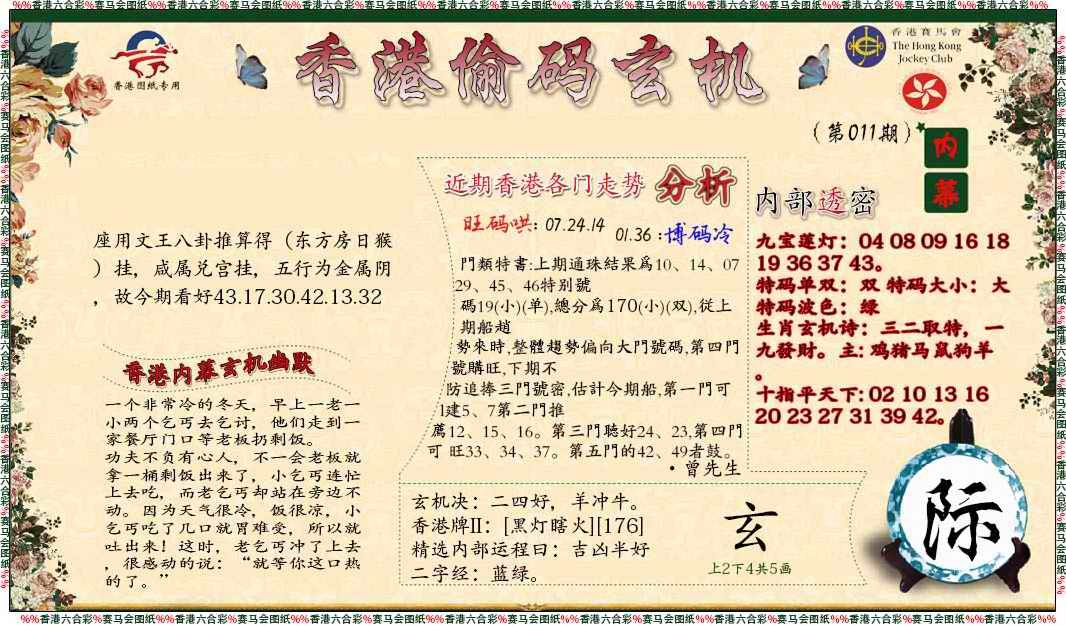 %%香港六合彩%赛马会图纸%%香港六合彩%赛马会图纸%%香港六合彩%赛马会图纸%%香港六合彩%赛马会图纸%%香港六合彩%赛马会图纸%%香港六合彩%赛马会图纸%%香港六合彩%赛马会图纸%%香港六合彩%%
香港图纸专用
香港偷码玄机
香港賽馬會
The Hong Kong
Jockey Club
（第011期）
内
幕
座用文王八卦推算得（东方房日猴
）挂，咸属兑宫挂，五行为金属阴
，故今期看好43.17.30.42.13.32
香港内幕玄机幽默
一个非常冷的冬天，早上一老一
小两个乞丐去乞讨，他们走到一
家餐厅门口等老板扔剩饭。
功夫不负有心人，不一会老板就
拿一桶剩饭出来了，小乞丐连忙
上去吃，而老乞丐却站在旁边不
动。因为天气很冷，饭很凉，小
乞丐吃了几口就胃难受，所以就
吐出来！这时，老乞丐冲了上去
，很感动的说：“就等你这口热
的了。”
近期香港各门走势 分析
旺码哄：07.24.14
01.36：博码冷
門類特書:上期通珠結果爲10、14、07
29、45、46特别號
碼19(小)(单),總分爲170(小)(双),從上
期船趟
勢來時,整體趨勢偏向大門號碼,第四門
號購旺,下期不
防追捧三門號密,估計今期船,第一門可
1建5、7第二門推
薦12、15、16。第三門聽好24、23,第四門
可 旺33、34、37。第五門的42、49者鼓。
·曾先生
玄机决：二四好，羊冲牛。
香港牌II：[黑灯瞎火][176]
精选内部运程曰：吉凶半好
二字经：蓝绿。
玄
上2下4共5画
内部透密
九宝莲灯：04 08 09 16 18
19 36 37 43。
特码单双：双 特码大小：大
特码波色：绿
生肖玄机诗：三二取特，一
九發财。主: 鸡猪马鼠狗羊
。
十指平天下: 02 10 13 16
20 23 27 31 39 42。
际
%%香港六合彩%赛马会图纸%%香港六合彩%赛马会图纸%%香港六合彩%赛马会图纸%%香港六合彩%赛马会图纸%%香港六合彩%赛马会图纸%%香港六合彩%赛马会图纸%%香港六合彩%赛马会图纸%%香港六合彩%%